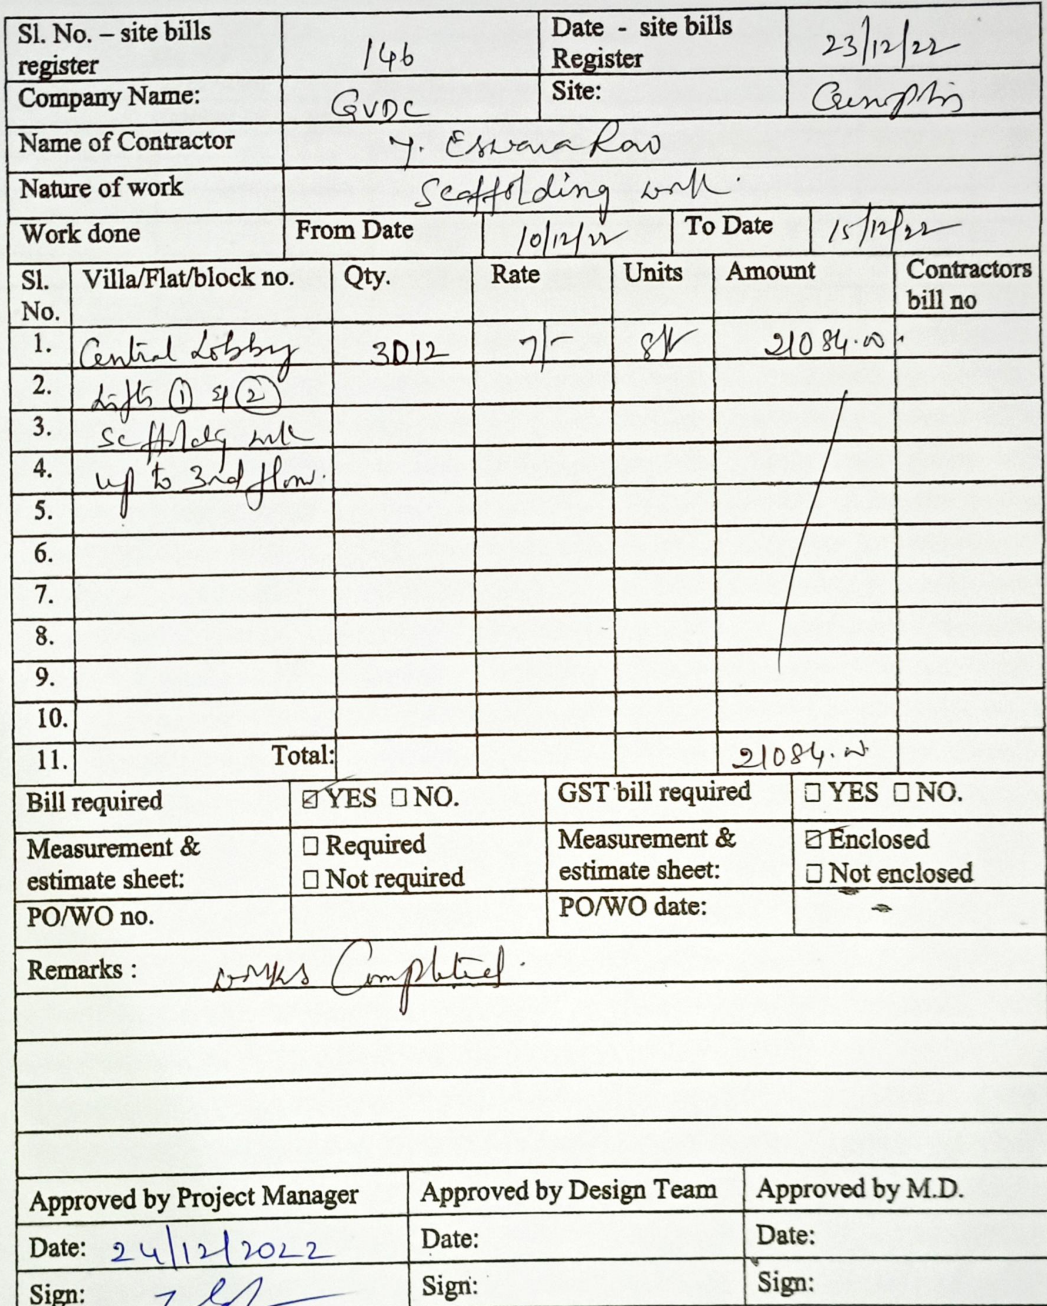 Sl. No. – site bills register 146 Date - site bills Register 23/12/22
Company Name: GVDC Site:
Name of Contractor Y. Eswara Rao
Nature of work Scaffolding work.
Work done From Date 10/12/22 To Date 15/12/22
Sl. No. Villa/Flat/block no. Qty. Rate Units Amount Contractors bill no
1. Central Lobby 3012 7/- sft 21084.00
2. Lifts ① & ②
3. scaffoldg work
4. up to 3rd floor.
5.
6.
7.
8.
9.
10.
11. Total: 21084.00
Bill required ☑ YES ☐ NO. GST bill required ☐ YES ☐ NO.
Measurement & estimate sheet: ☐ Required ☐ Not required Measurement & estimate sheet: ☑ Enclosed ☐ Not enclosed
PO/WO no. PO/WO date: -
Remarks : works Completed.
Approved by Project Manager Approved by Design Team Approved by M.D.
Date: 24/12/2022 Date: Date:
Sign: Sign: Sign: